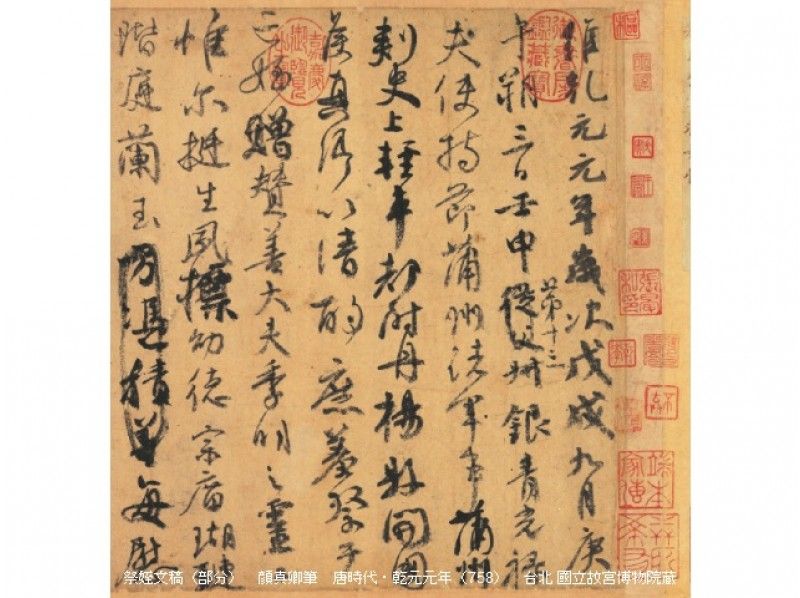 維乾元元年歲次戊戌九月庚
午朔三日壬申第十三從父銀青光祿
夫使持節蒲州諸軍事蒲州
刺史上輕車都尉丹楊縣開國
侯真卿以清酌庶羞祭于
亡姪贈贊善大夫季明之靈
惟尔挺生夙標幼德宗廟瑚璉
階庭蘭玉方憑積善每慰
御書房鑑藏寶
嘉慶御覽之寶
祭姪文稿（部分）　顔真卿筆　唐時代・乾元元年（758）　台北 國立故宮博物院藏